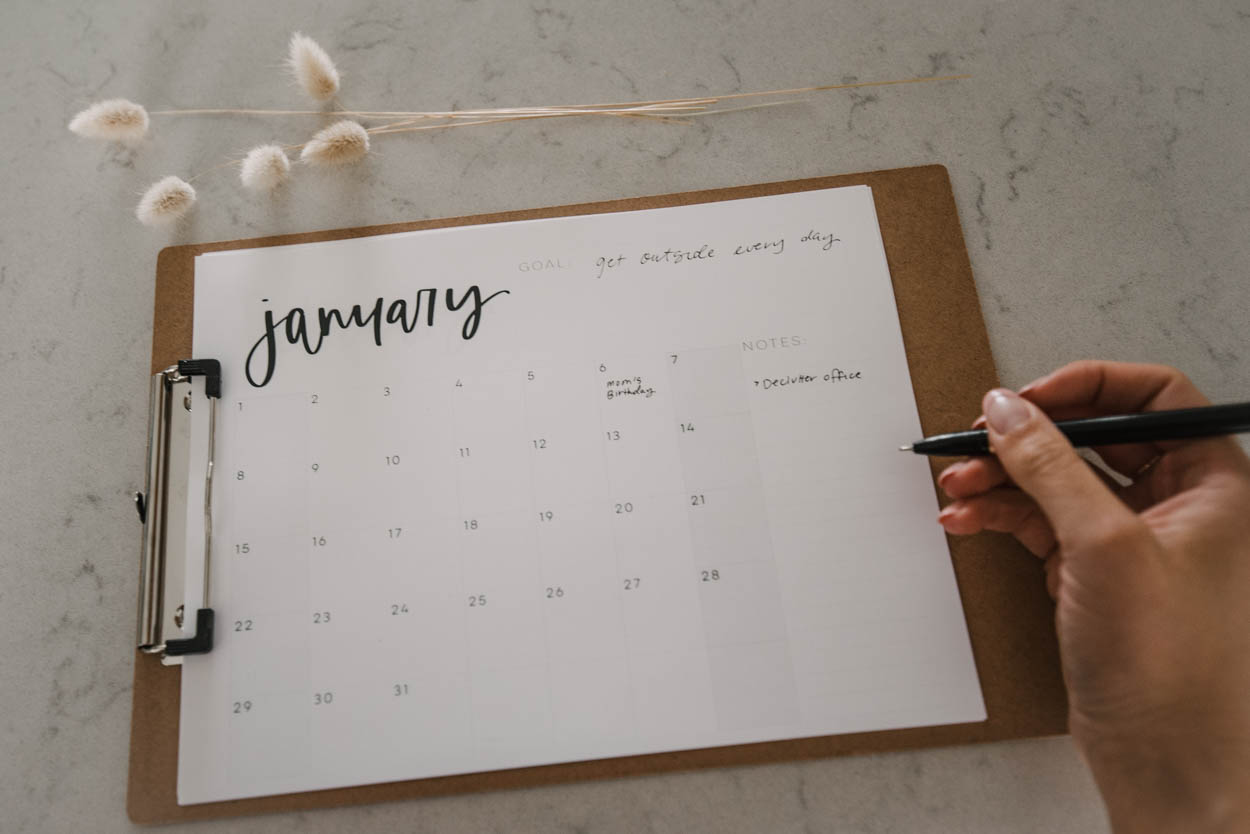 GOAL: get outside every day
january
NOTES:
› Declutter office
1 2 3 4 5 6 7
Mom's
Birthday
8 9 10 11 12 13 14
15 16 17 18 19 20 21
22 23 24 25 26 27 28
29 30 31